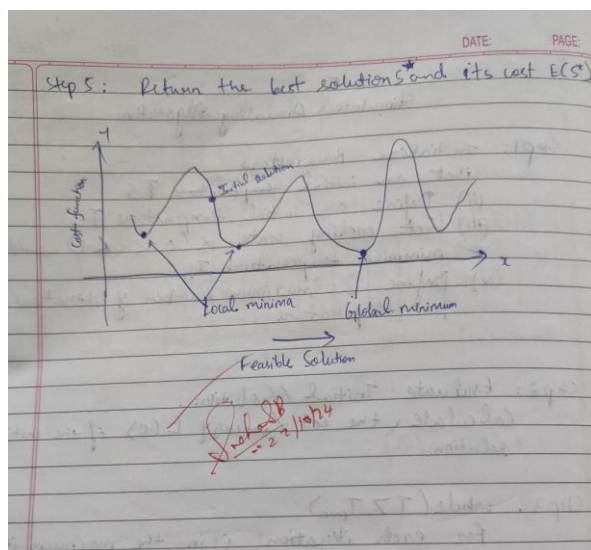 DATE: PAGE:
Step 5: Return the best solution S* and its cost E(S*)
Y
Cost function
Initial solution
x
Local minima
Global minimum
Feasible Solution
22/10/24